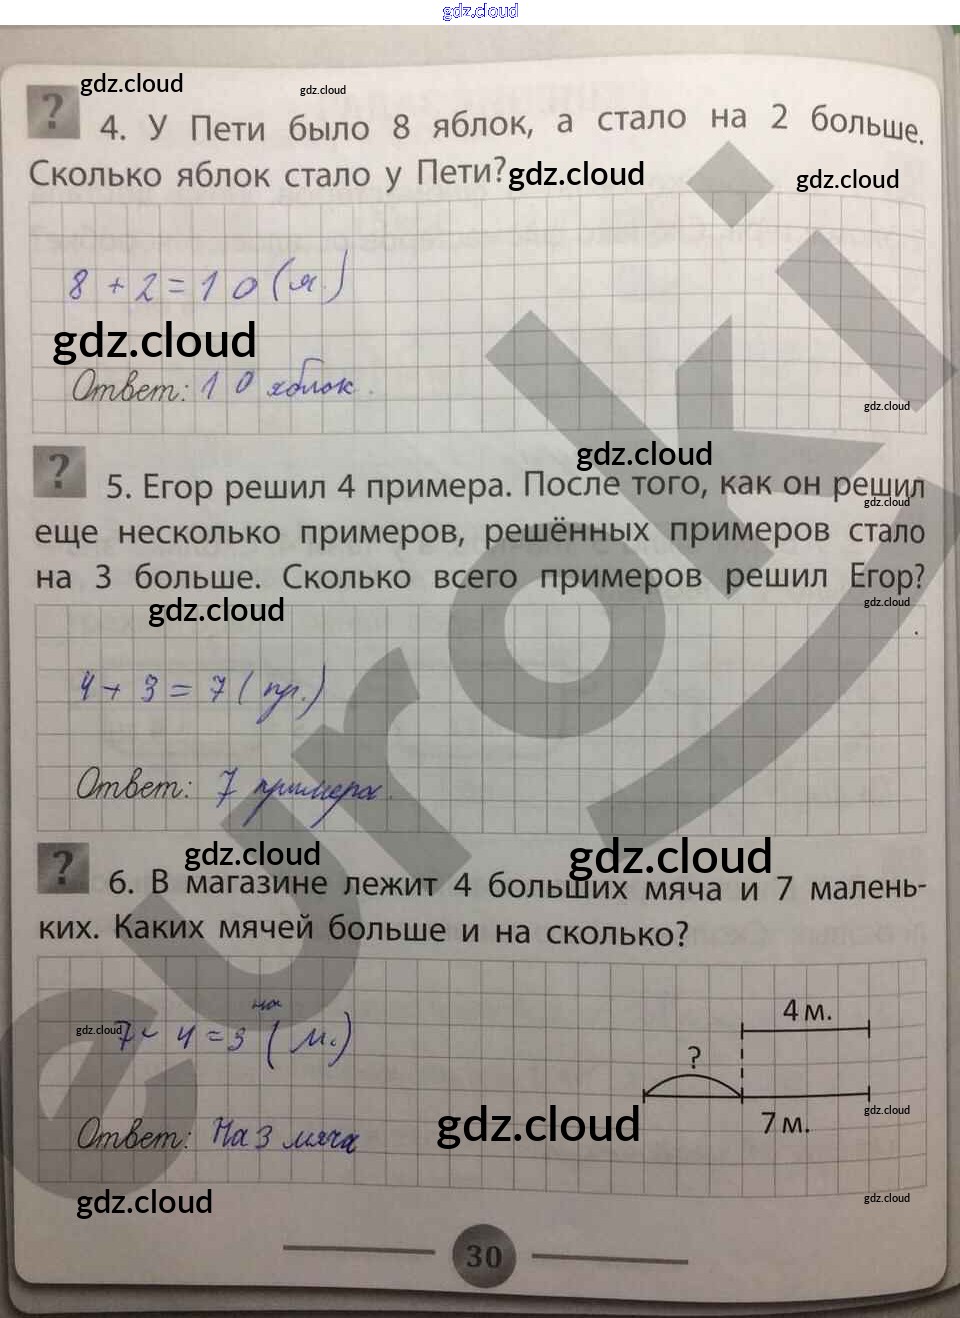 gdz.cloud
gdz.cloud
gdz.cloud
?
4. У Пети было 8 яблок, а стало на 2 больше.
Сколько яблок стало у Пети?
gdz.cloud
gdz.cloud
8 + 2 = 10 (я.)
gdz.cloud
Ответ: 10 яблок.
gdz.cloud
?
gdz.cloud
5. Егор решил 4 примера. После того, как он решил
gdz.cloud
еще несколько примеров, решённых примеров стало
на 3 больше. Сколько всего примеров решил Егор?
gdz.cloud
gdz.cloud
4 + 3 = 7 (пр.)
Ответ: 7 примера.
?
gdz.cloud
gdz.cloud
6. В магазине лежит 4 больших мяча и 7 малень-
ких. Каких мячей больше и на сколько?
на
gdz.cloud
7 - 4 = 3 (м.)
4 м.
?
7 м.
gdz.cloud
gdz.cloud
Ответ: На 3 мяча
gdz.cloud
gdz.cloud
30
euroki